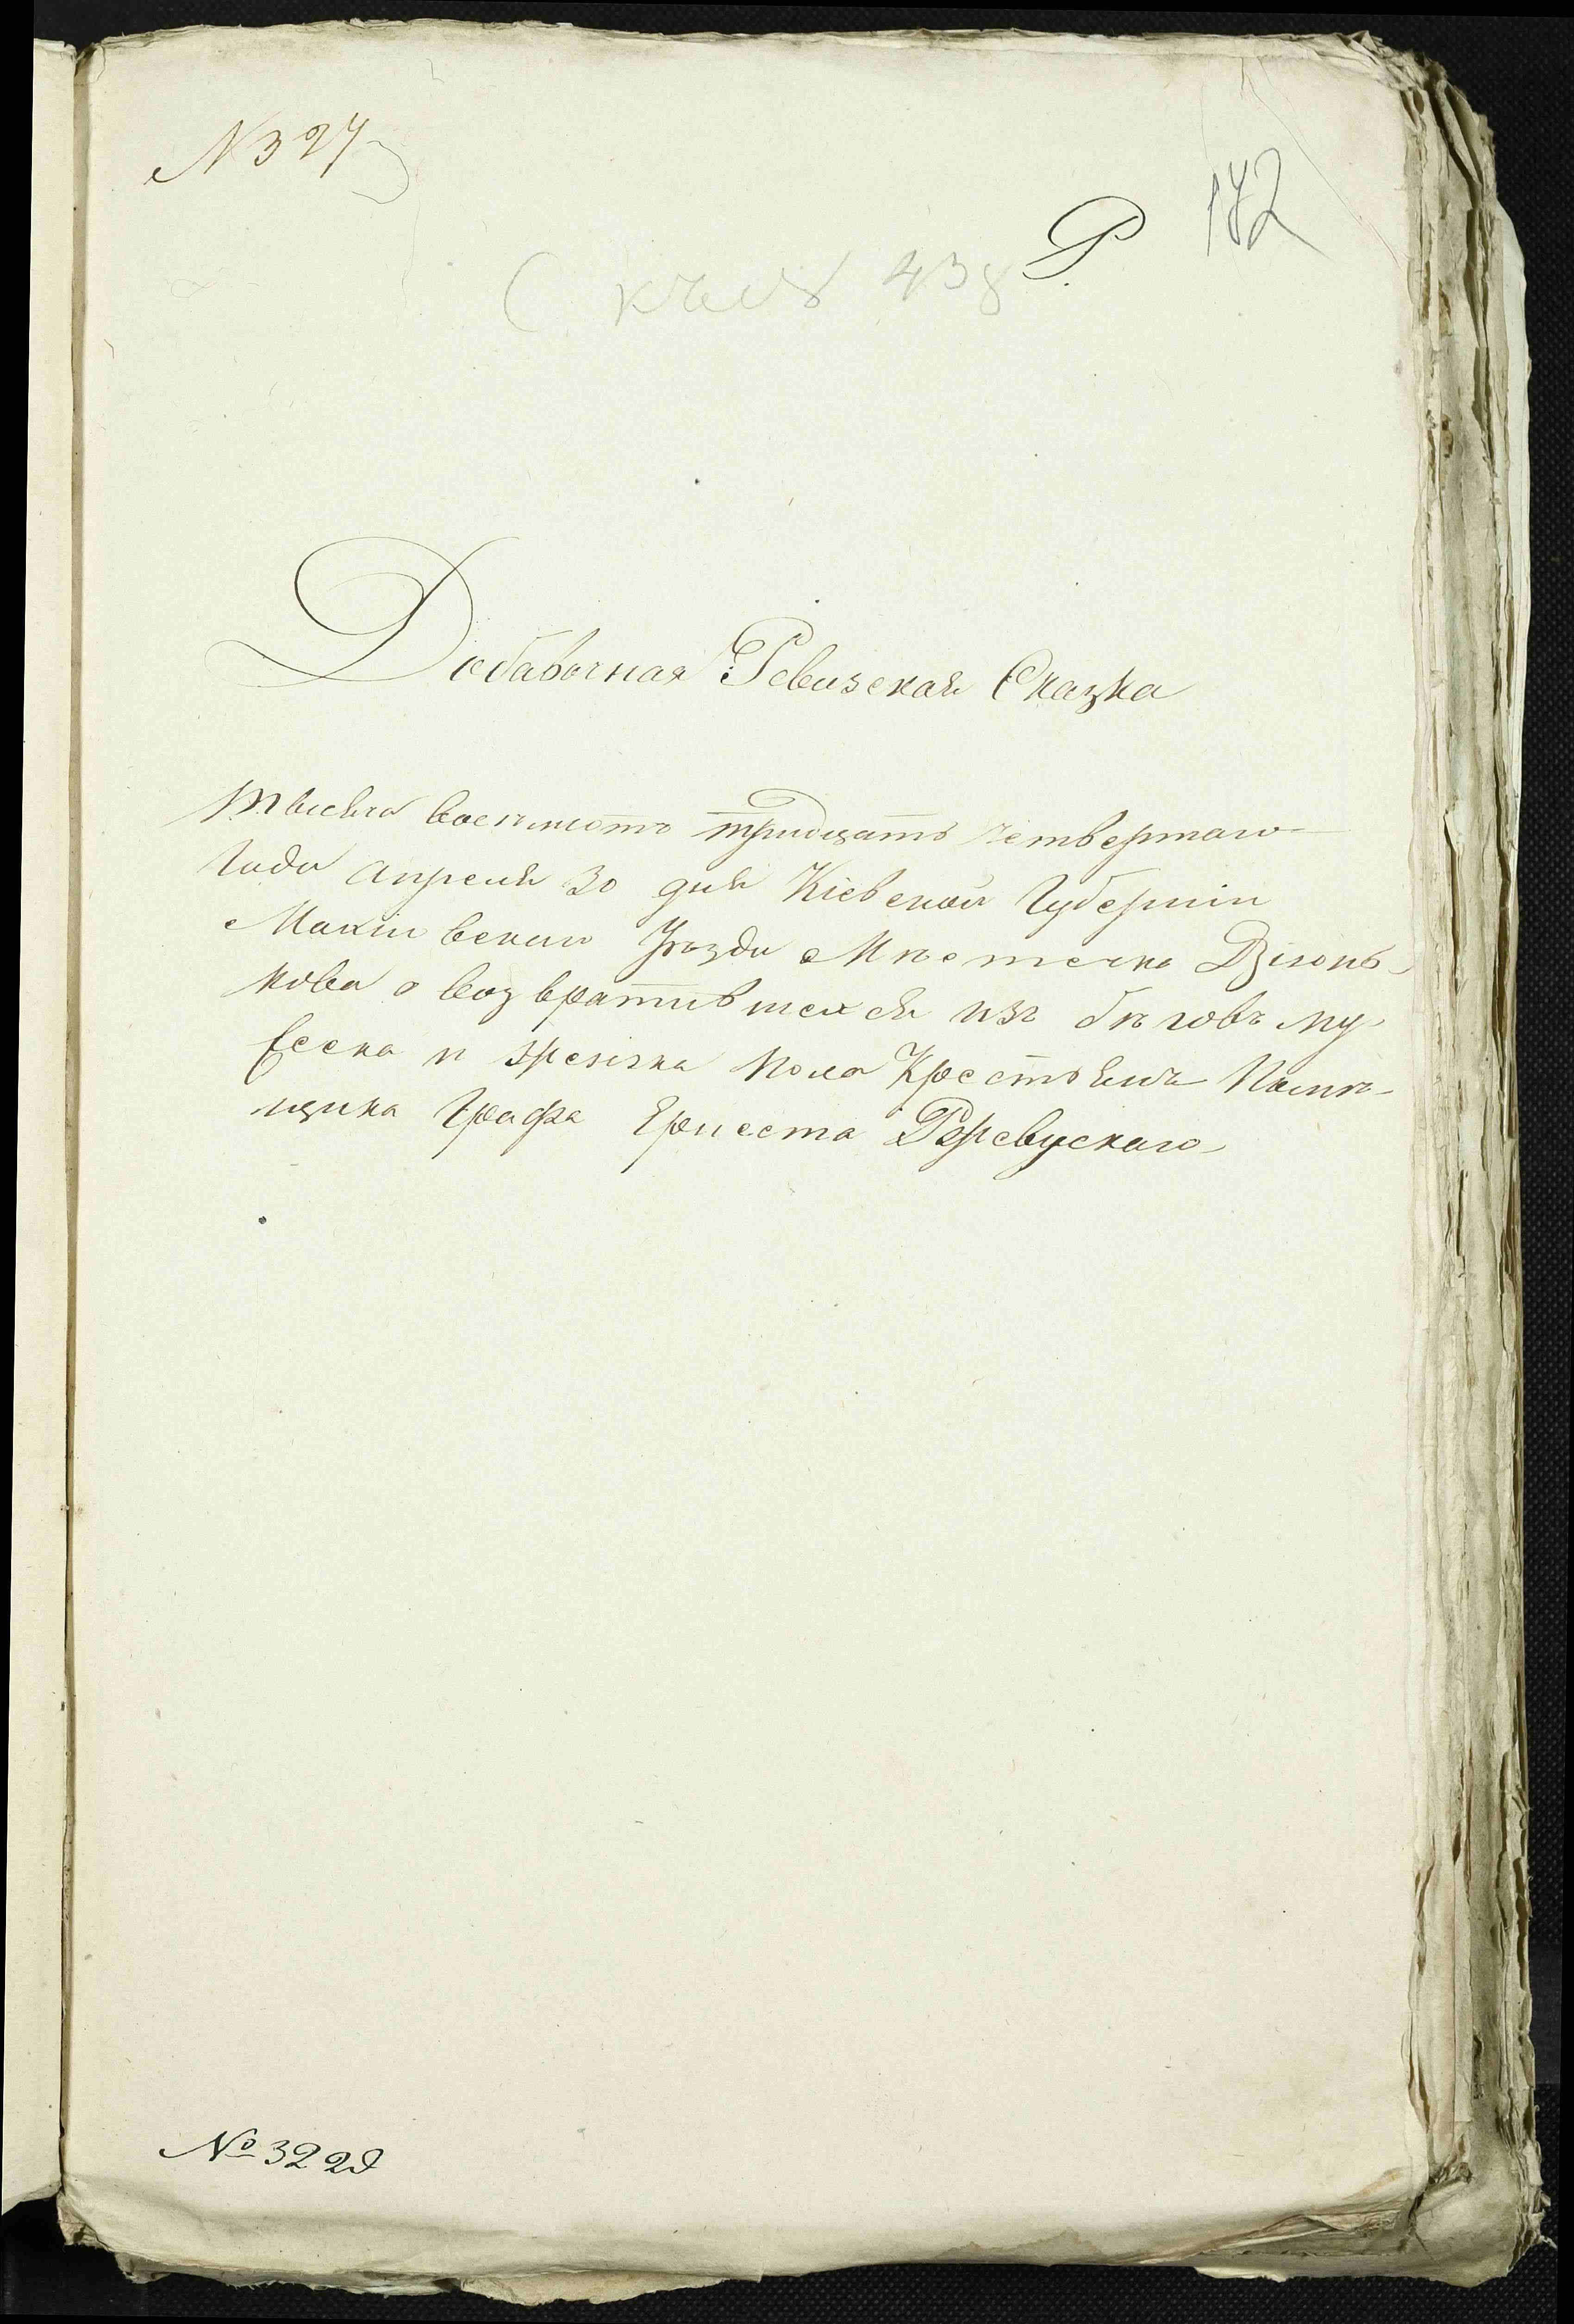 N 324
172
Р.
438
Добавочная Ревизская Сказка
Тысяча восемьсотъ тридцать четвертаго
Года Апреля 30 дня Кіевской Губерніи
Махновскаго Уезда Мѣстечка Дзюнь-
кова о возвратившехся изъ бѣговъ му-
ческа и женска пола Крестьянъ Помѣ-
щика Графа Ернеста Ржевускаго
№ 3229